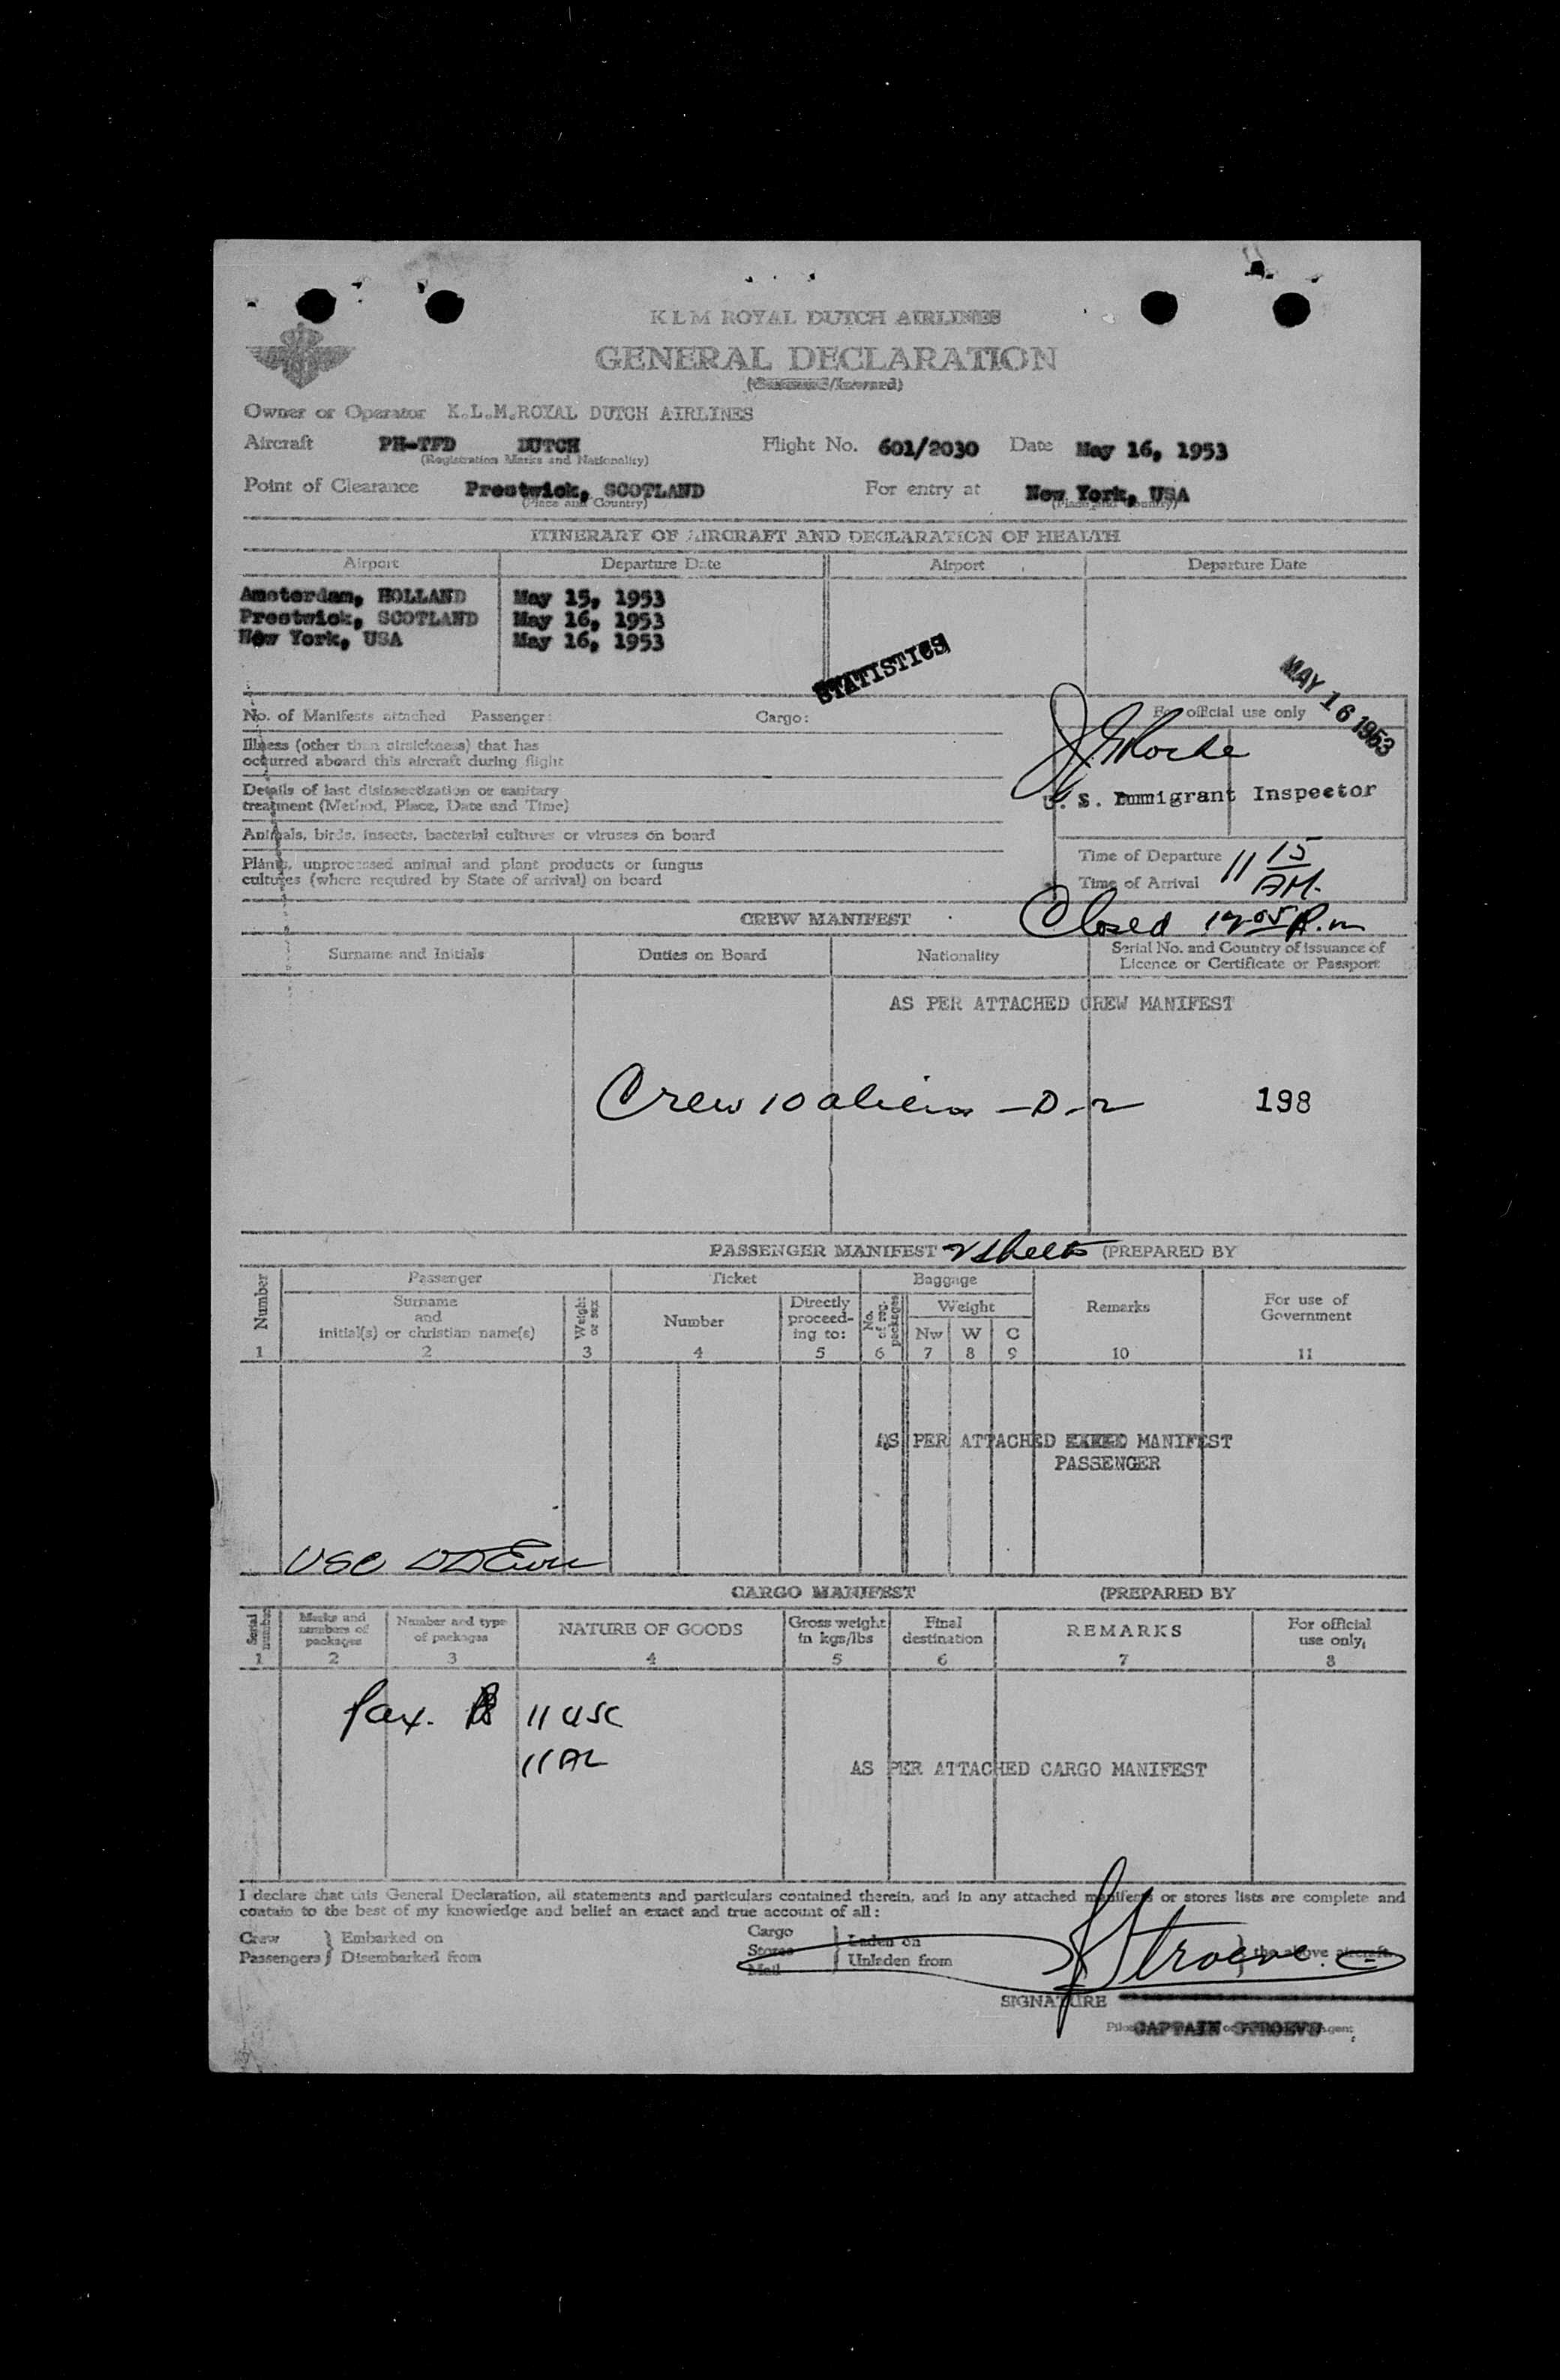 K L M ROYAL DUTCH AIRLINES
GENERAL DECLARATION
(Outward/Inward)
Owner or Operator K.L.M.ROYAL DUTCH AIRLINES
Aircraft PH-TFD DUTCH Flight No. 601/2030 Date May 16, 1953
(Registration Marks and Nationality)
Point of Clearance Prestwick, SCOTLAND For entry at New York, USA
(Place and Country) (Place and Country)
ITINERARY OF AIRCRAFT AND DECLARATION OF HEALTH
Airport Departure Date Airport Departure Date
Amsterdam, HOLLAND May 15, 1953
Prestwick, SCOTLAND May 16, 1953
New York, USA May 16, 1953
STATISTICS
MAY 16 1953
No. of Manifests attached Passenger: Cargo: For official use only
Illness (other than airsickness) that has
occurred aboard this aircraft during flight
Details of last disinsectization or sanitary
treatment (Method, Place, Date and Time)
U. S. Immigrant Inspector
Animals, birds, insects, bacterial cultures or viruses on board
Plants, unprocessed animal and plant products or fungus
cultures (where required by State of arrival) on board
Time of Departure 11 15
Time of Arrival AM.
CREW MANIFEST Closed 1205 P.m
Surname and Initials Duties on Board Nationality Serial No. and Country of issuance of
Licence or Certificate or Passport
AS PER ATTACHED CREW MANIFEST
Crew 10 aliens - D-2 198
PASSENGER MANIFEST 2 sheets (PREPARED BY
Number Passenger Ticket Baggage Remarks For use of
Government
Surname
and
initial(s) or christian name(s) Weight or sex Number Directly
proceed-
ing to: No. of reg. packages Weight
Nw W C
1 2 3 4 5 6 7 8 9 10 11
AS PER ATTACHED MANIFEST
PASSENGER
USC
CARGO MANIFEST (PREPARED BY
Serial number Marks and
numbers of
packages Number and type
of packages NATURE OF GOODS Gross weight
in kgs/lbs Final
destination REMARKS For official
use only
1 2 3 4 5 6 7 8
Pax. 11 USC
11 AL
AS PER ATTACHED CARGO MANIFEST
I declare that this General Declaration, all statements and particulars contained therein, and in any attached manifests or stores lists are complete and
contain to the best of my knowledge and belief an exact and true account of all:
Crew Embarked on Cargo Laden on
Passengers Disembarked from Stores Unladen from the above aircraft.
Mail
Stroeve
SIGNATURE
CAPTAIN STROEVE